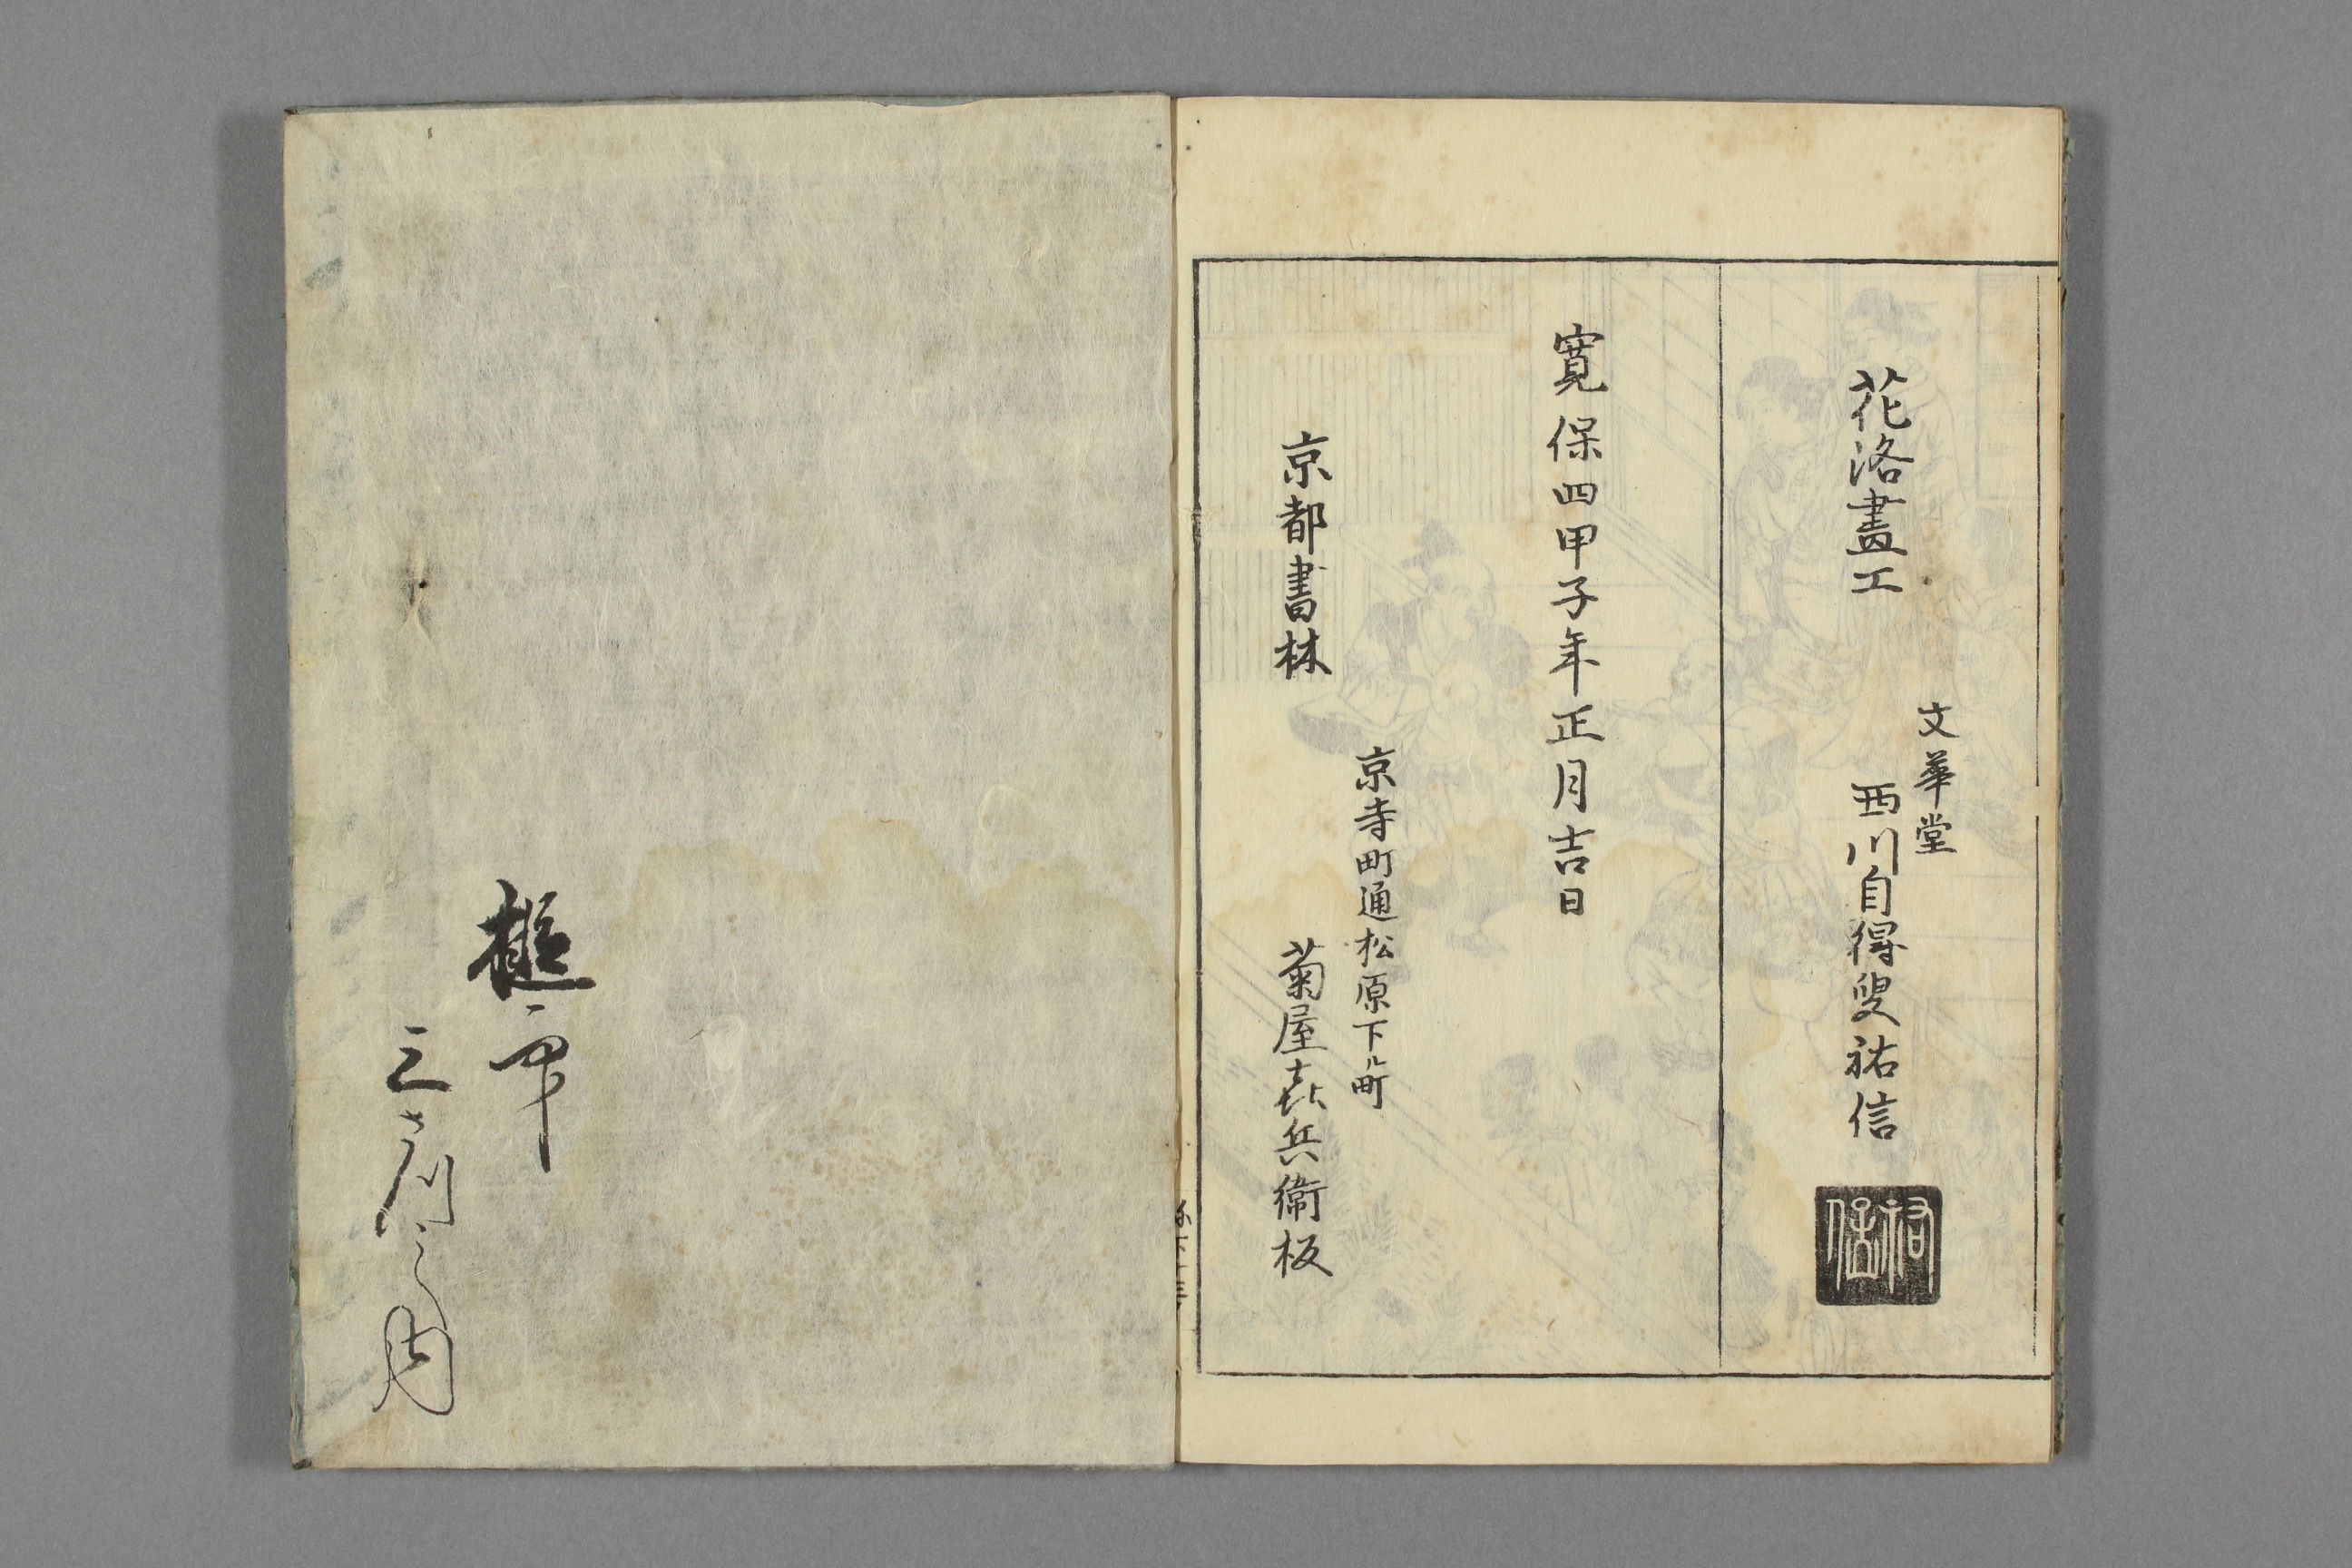 花洛畫工
文華堂
西川自得叟祐信
祐信
寛保四甲子年正月吉日
京都書林
京寺町通松原下ル町
菊屋㐂兵衛板